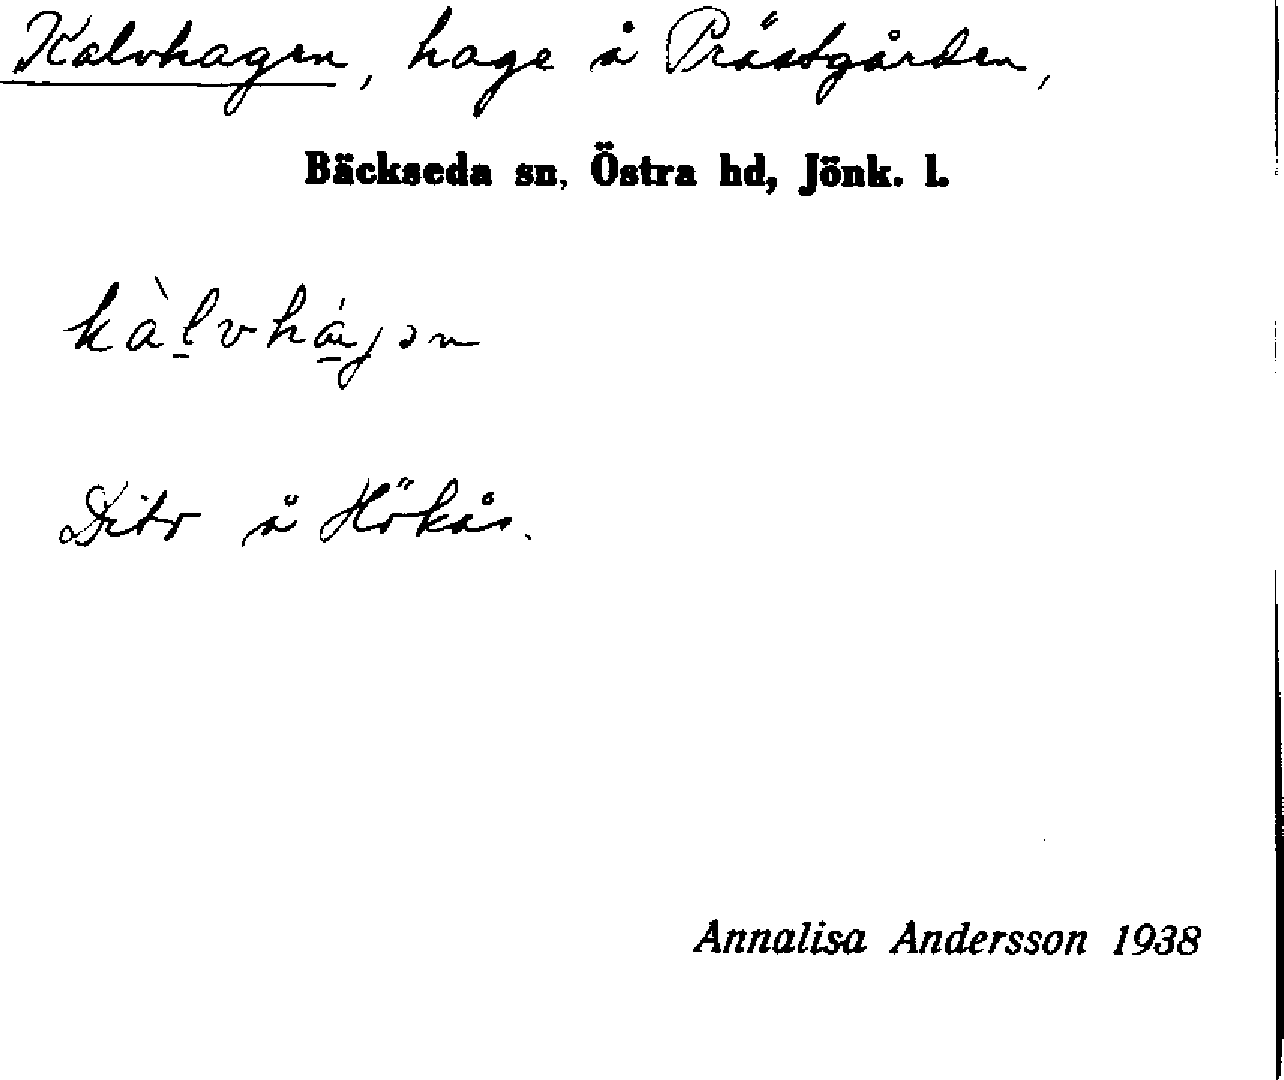 Kalvhagen, hage å Prästgården,
Bäckseda sn, Östra hd, Jönk. l.
kàlvhágən
Dito å Hökås.
Annalisa Andersson 1938